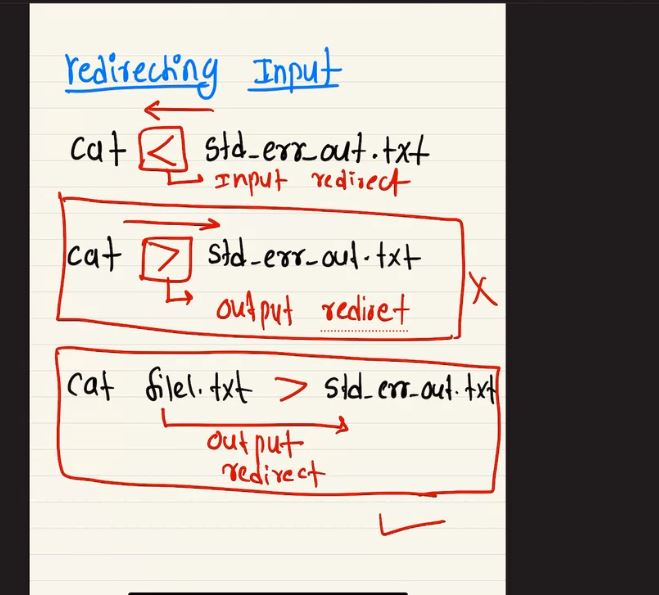 redirecting Input
cat < std_err_out.txt
Input redirect
cat > std_err_out.txt
output rediret
X
cat file1.txt > std_err_out.txt
output
redirect